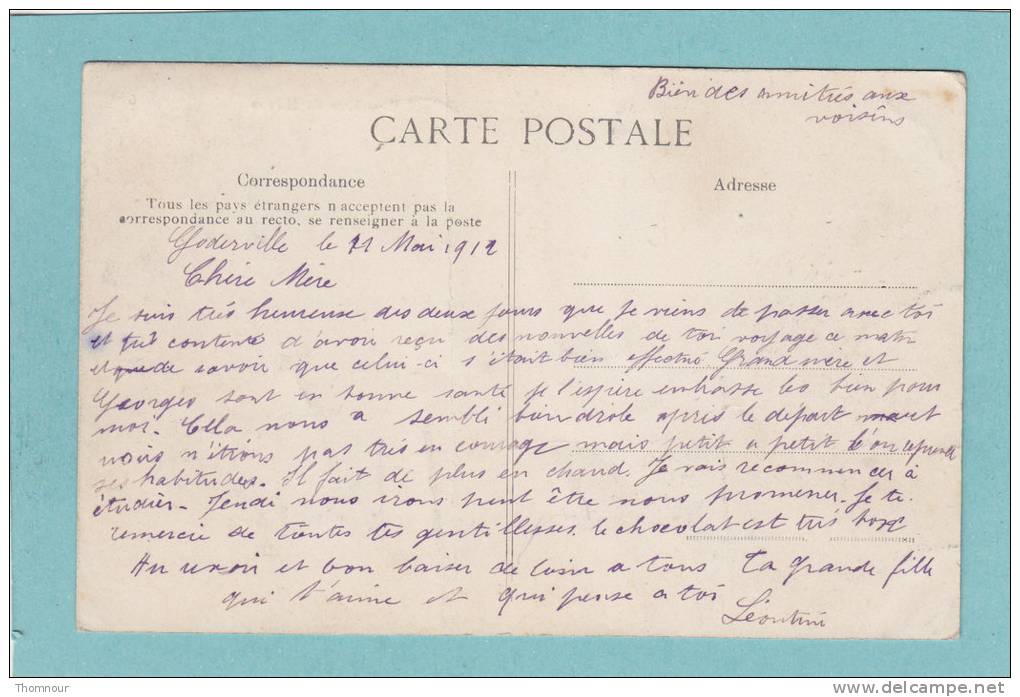 Bien des amitiés aux
voisins
CARTE POSTALE
Correspondance
Adresse
Tous les pays étrangers n'acceptent pas la
correspondance au recto, se renseigner à la poste
Goderville le 21 Mai 1912
Chère Mère
Je suis très heureuse des deux jours que je viens de passer avec toi
et contente d'avoir reçu des nouvelles de toi voyage ce matin
et de savoir que celui-ci s'était bien effectué Grand mère et
Georges sont en bonne santé je l'espère embrasse les bien pour
moi. Cella nous a sembli bien drole après le départ et
nous n'étions pas très en courage mais petit a petit l'on reprend
ses habitudes. Il fait de plus en chaud. Je vais recommencer à
étudier. Jeudi nous irons peut être nous promener. Je te
remercie de toutes tes gentillesses. le chocolat est très bon
Au revoir et bon baiser de loin a tous Ta grande fille
qui t'aime et qui pense a toi
Léontine
Thomnour
delcampe.net